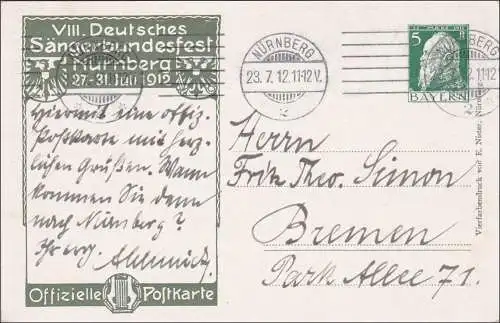 VIII. Deutsches
Sängerbundesfest
Nürnberg
27.-31. Juli 1912
Hiermit eine offiz.
Postkarte mit herz-
lichen Grüßen. Wann
kommen Sie denn
nach Nürnberg?
Ihr erg.
Offizielle Postkarte
NÜRNBERG
23. 7. 12. 11-12 V.
2
5
BAYERN
Herrn
Fritz Theo. Simon
Bremen
Park Allee 71.
Vierfarbendruck von E. Nister, Nürnberg